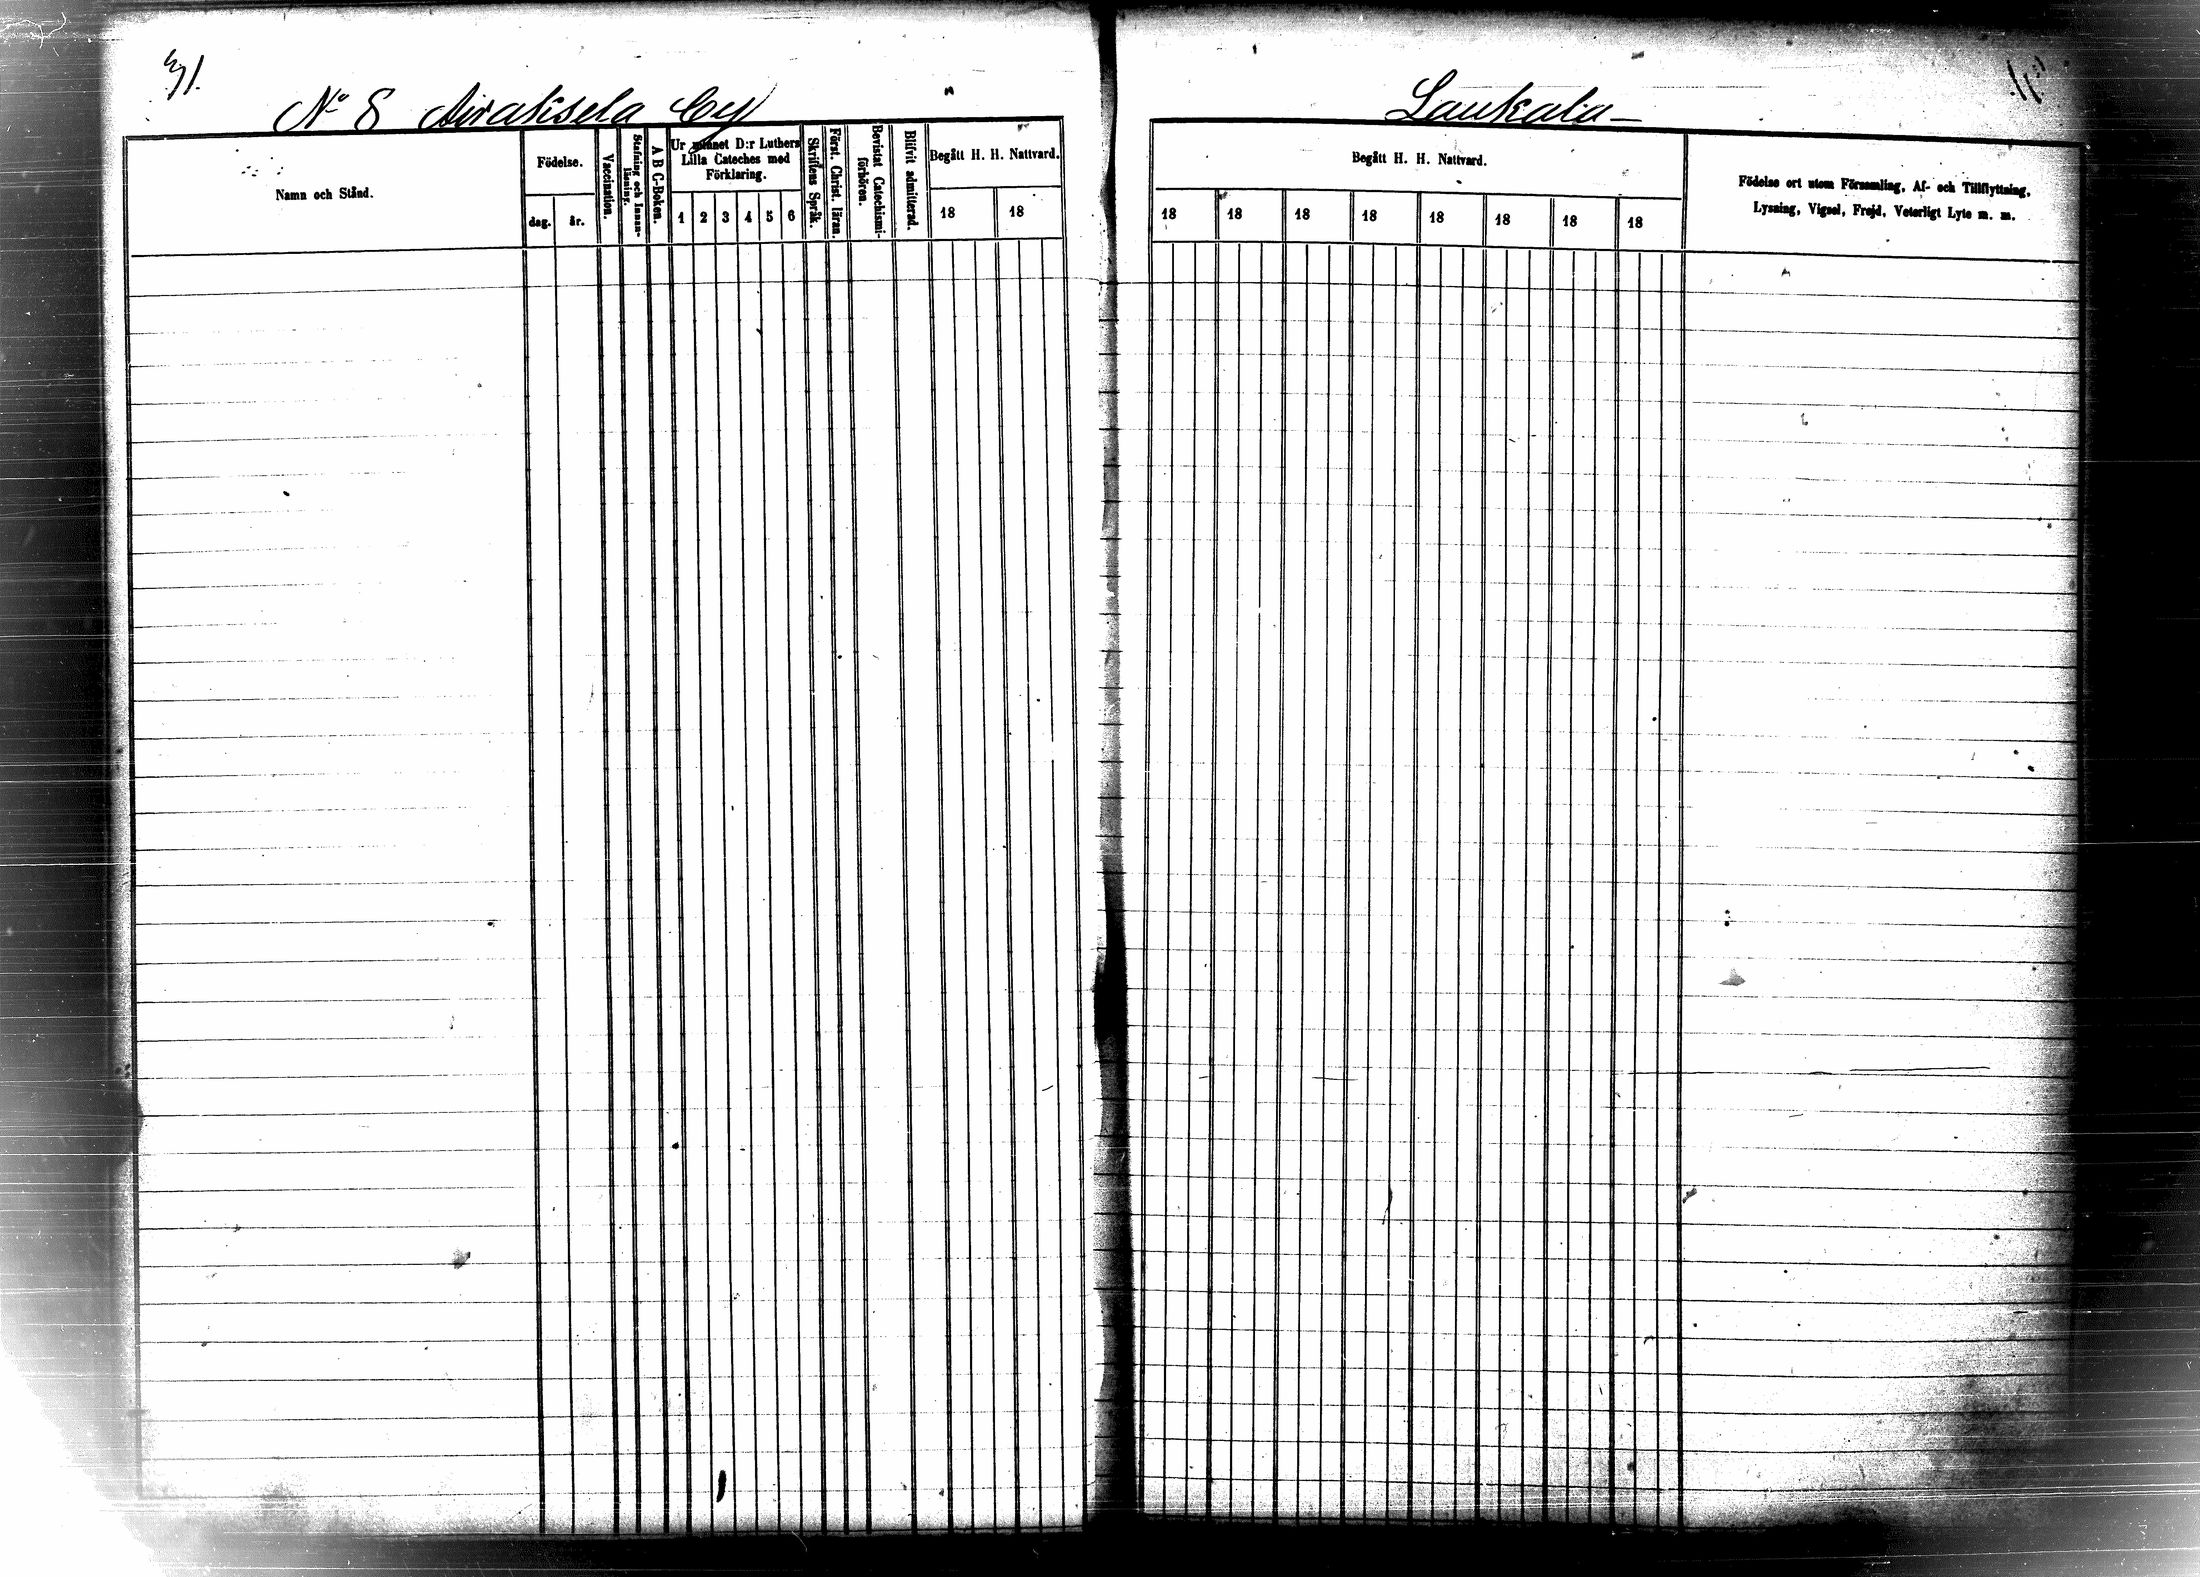 No 8 Airaksela By
Namn och Stånd.
Födelse.
dag. år.
Vaccination.
Stafning och Innan-
läsning.
A B C-Boken.
Ur minnet D:r Luthers
Lilla Cateches med
Förklaring.
1 2 3 4 5 6
Skriftens Språk.
Först. Christ. läran.
Bevistat Catechismi-
förhören.
Blifvit admitterad.
Begått H. H. Nattvard.
18 18
Laukala
Begått H. H. Nattvard.
18 18 18 18 18 18 18 18
Födelse ort utom Församling, Af- och Tillflyttning,
Lysning, Vigsel, Frejd, Veterligt Lyte m. m.